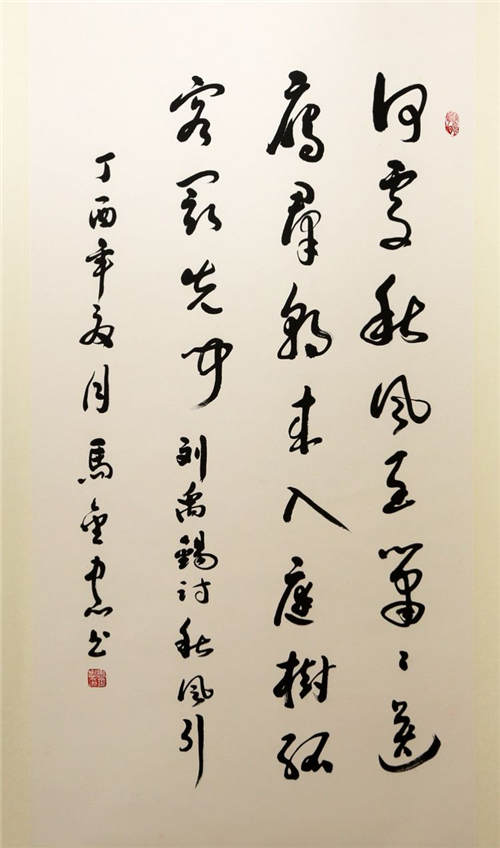 何處秋風至蕭〻送
雁羣朝來入庭樹孤
客最先聞 劉禹錫詩秋風引
丁酉年夏月馬金忠书